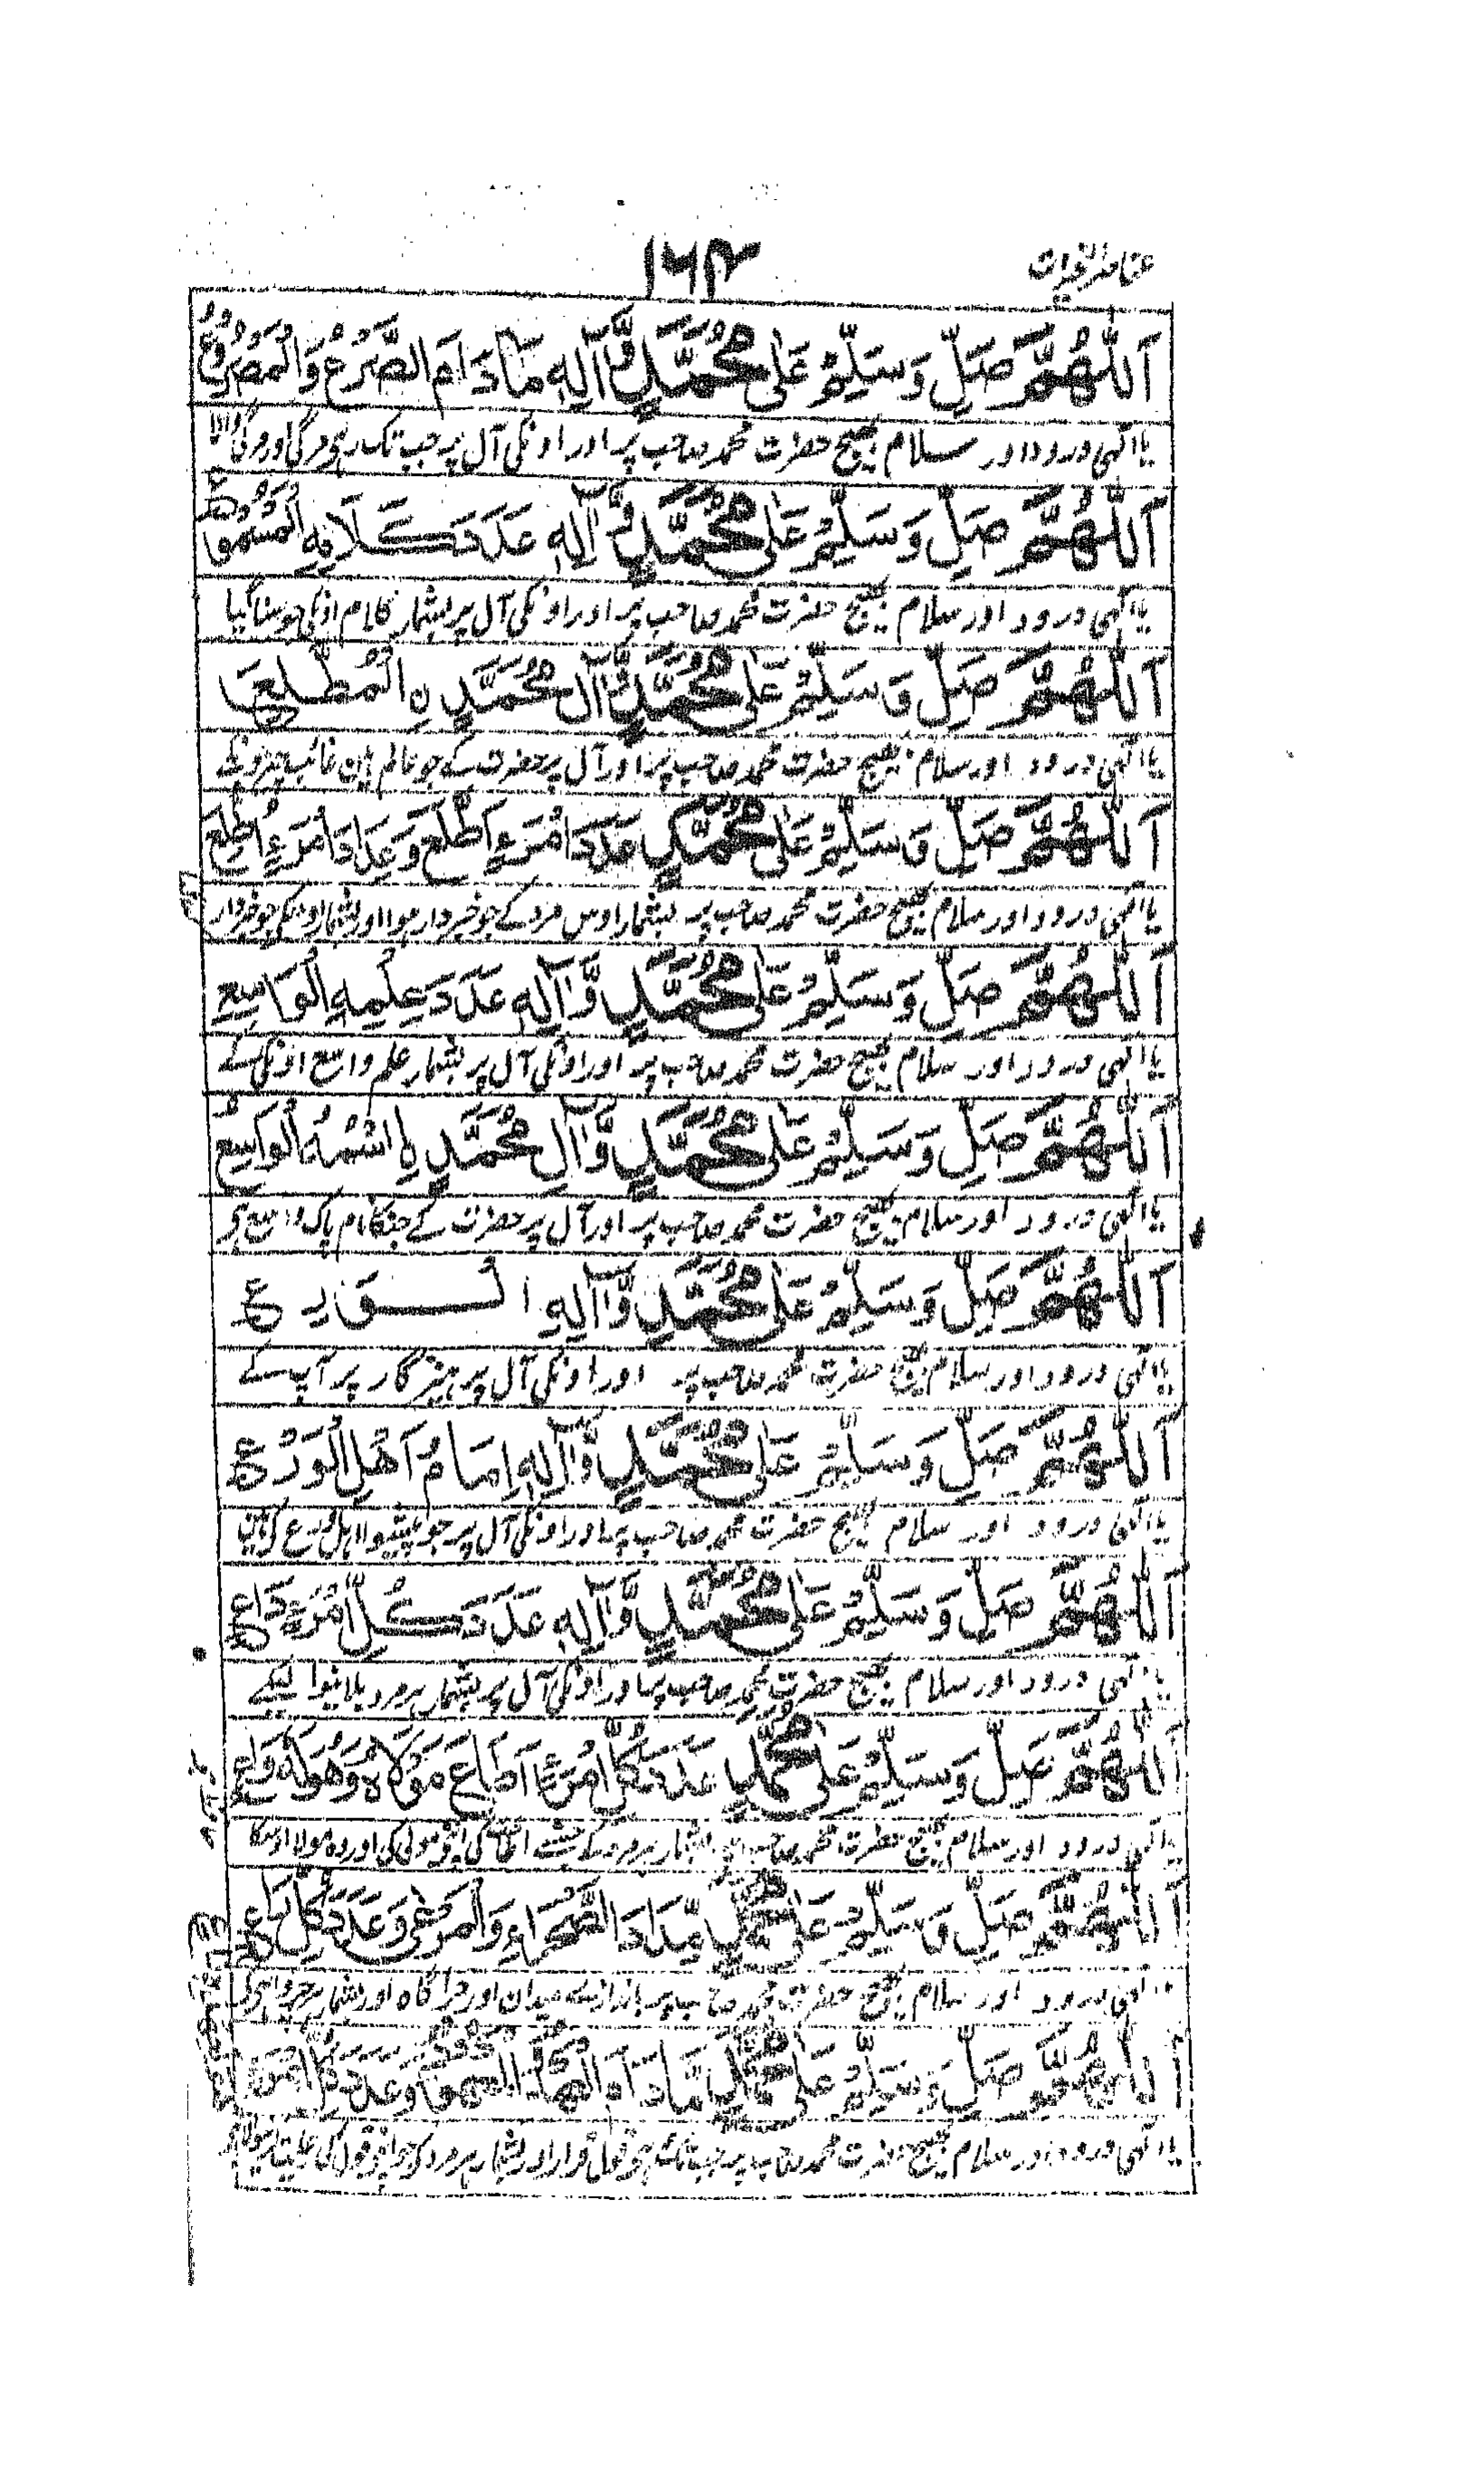 ۱۶۴
عناصر الخيرات
اَللّٰهُمَّ صَلِّ وَسَلِّمْ عَلٰى مُحَمَّدٍ وَّاٰلِهٖ مَا دَامَ الصَّرْعُ وَالْمَصْرُوْعُ
یا الٰہی درود اور سلام بھیج حضرت محمد صاحب پر اور اونکی آل پر جب تک رہی مرگی اور مرگی والا
اَللّٰهُمَّ صَلِّ وَسَلِّمْ عَلٰى مُحَمَّدٍ وَّاٰلِهٖ عَدَدَ كَلَامِهِ الْمَسْمُوْعِ
یا الٰہی درود اور سلام بھیج حضرت محمد صاحب پر اور اونکی آل پر بشمار کلام اونکی جو سنا گیا
اَللّٰهُمَّ صَلِّ وَسَلِّمْ عَلٰى مُحَمَّدٍ وَّاٰلِ مُحَمَّدٍ نِ الْمُطَّلِعِ
یا الٰہی درود اور سلام بھیج حضرت محمد صاحب پر اور آل پر حضرت کے جو عالم ہین غائب چیزونکے
اَللّٰهُمَّ صَلِّ وَسَلِّمْ عَلٰى مُحَمَّدٍ عَدَدَ امْرَءٍ اَطْلَعَ وَعَدَدَ امْرَءٍ اُطْلِعَ
یا الٰہی درود اور سلام بھیج حضرت محمد صاحب پر بشمار اوس مرد کے جو خبردار ہوا اور بشمار اوسکی جو خبردار
اَللّٰهُمَّ صَلِّ وَسَلِّمْ عَلٰى مُحَمَّدٍ وَّاٰلِهٖ عَدَدَ عِلْمِهِ الْوَاسِعِ
یا الٰہی درود اور سلام بھیج حضرت محمد صاحب پر اور اونکی آل پر بشمار علم واسع اونکی کے
اَللّٰهُمَّ صَلِّ وَسَلِّمْ عَلٰى مُحَمَّدٍ وَّاٰلِ مُحَمَّدٍ اسْمُهُ الْوَاسِعُ
یا الٰہی درود اور سلام بھیج حضرت محمد صاحب پر اور آل پر حضرت کے جنکا نام پاک واسع ہی
اَللّٰهُمَّ صَلِّ وَسَلِّمْ عَلٰى مُحَمَّدٍ وَّاٰلِهِ
یا الٰہی درود اور سلام بھیج حضرت محمد صاحب پر اور اونکی آل پر ہیزگار پر آپ کے
اَللّٰهُمَّ صَلِّ وَسَلِّمْ عَلٰى مُحَمَّدٍ وَّاٰلِهٖ اِمَامُ اَهْلِ الْوَرْعِ
یا الٰہی درود اور سلام بھیج حضرت محمد صاحب پر اور اونکی آل پر جو پیشوا اہل ورع کی ہین
اَللّٰهُمَّ صَلِّ وَسَلِّمْ عَلٰى مُحَمَّدٍ وَّاٰلِهٖ عَدَدَ كُلِّ امْرَءٍ دَاعٍ
یا الٰہی درود اور سلام بھیج حضرت محمد صاحب پر اور اونکی آل پر بشمار ہر مرد بلانیوالیکے
اَللّٰهُمَّ صَلِّ وَسَلِّمْ عَلٰى مُحَمَّدٍ عَدَدَ كُلِّ امْرَءٍ اَطَاعَ مَوْلَاهُ وَهُوَ لَهٗ
یا الٰہی درود اور سلام بھیج حضرت محمد صاحب پر بشمار ہر مرد کے مولی کی اور وہ مولا اوسکا
اَللّٰهُمَّ صَلِّ وَسَلِّمْ عَلٰى مُحَمَّدٍ مِّدَادَ الصَّحْرَاءِ وَالْمَرْعٰى وَعَدَدَ كُلِّ رَاعٍ
الٰہی درود اور سلام بھیج حضرت محمد صاحب پر بانداز میدان اور چراگاہ اور بشمار ہر
اَللّٰهُمَّ صَلِّ وَسَلِّمْ عَلٰى مُحَمَّدٍ وَعَدَدَ
یا الٰہی درود اور سلام بھیج حضرت محمد صاحب پر اور بشمار ہر مرد کے